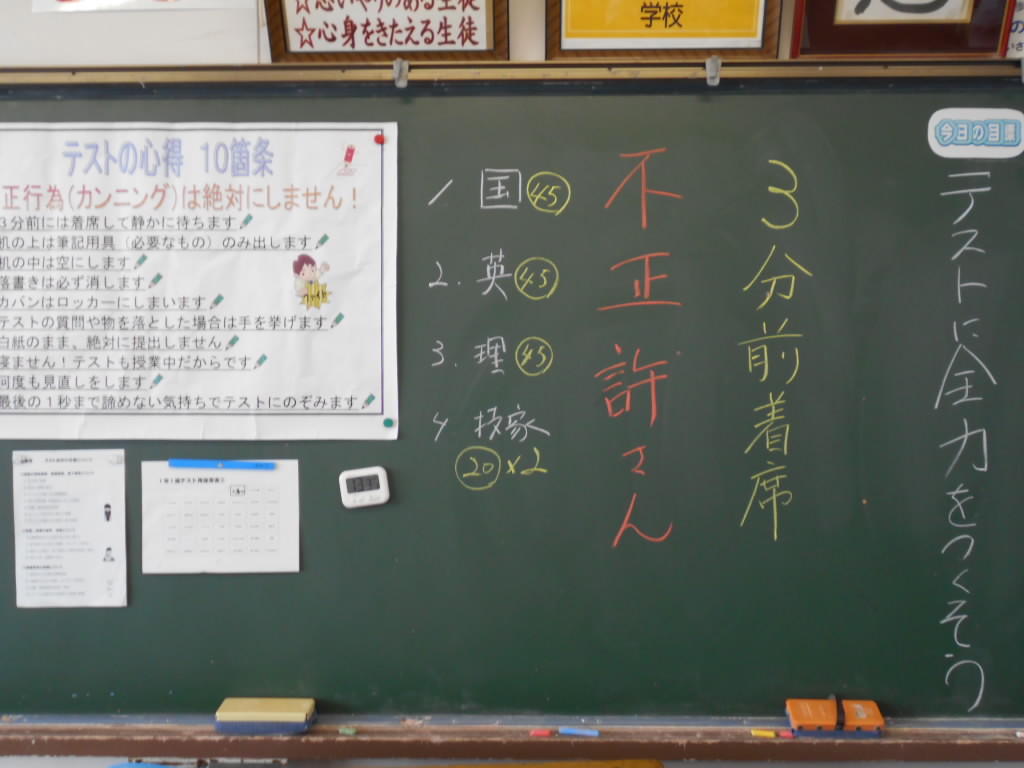 ☆思いやりのある生徒
☆心身をきたえる生徒
学校
今日の目標
テストに全力をつくそう
3分前着席
不正許さん
1. 国 45
2. 英 45
3. 理 45
4 技家
20×2
テストの心得 10箇条
正行為(カンニング)は絶対にしません!
3分前には着席して静かに待ちます
机の上は筆記用具(必要なもの)のみ出します
机の中は空にします
落書きは必ず消します
カバンはロッカーにしまいます
テストの質問や物を落とした場合は手を挙げます
白紙のまま、絶対に提出しません
寝ません!テストも授業中だからです
何度も見直しをします
最後の1秒まで諦めない気持ちでテストにのぞみます